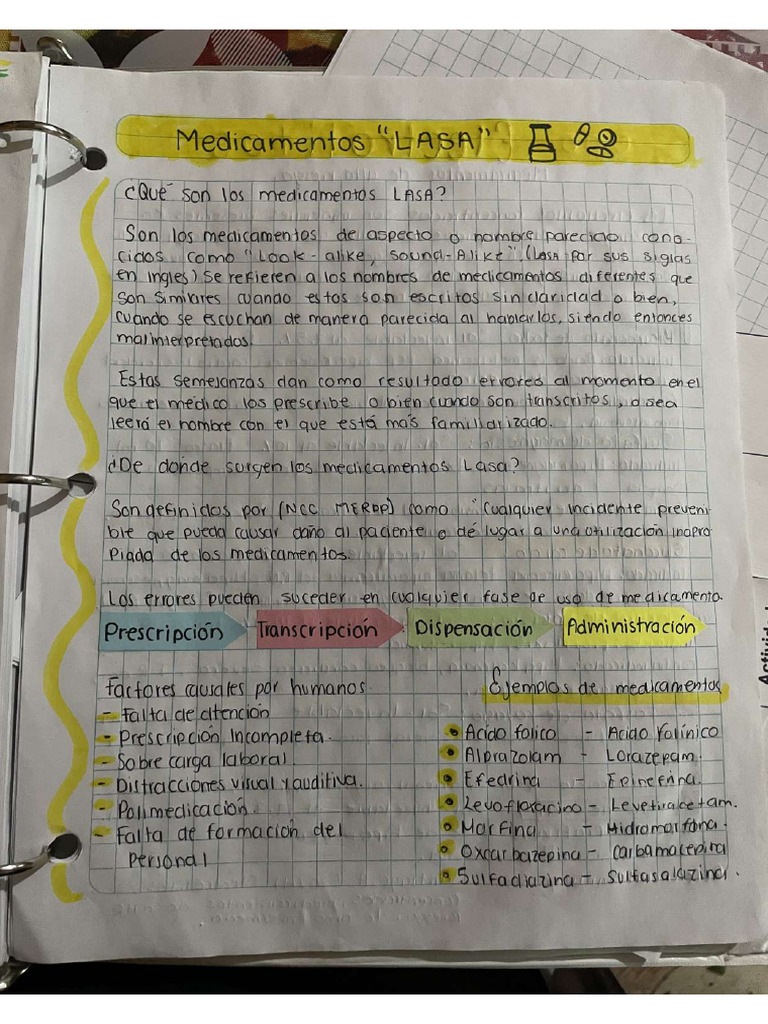 Medicamentos "LASA"
¿Qué son los medicamentos LASA?
Son los medicamentos de aspecto o nombre parecido cono-
cidos como "Look-alike, Sound-Alike" (LASA por sus siglas
en ingles) Se refieren a los nombres de medicamentos diferentes que
son similares cuando estos son escritos sin claridad o bien,
cuando se escuchan de manera parecida al hablarlos, siendo entonces
malinterpretados.
Estas semejanzas dan como resultado errores al momento en el
que el médico los prescribe o bien cuando son transcritos, o sea
leerá el nombre con el que está más familiarizado.
¿De donde surgen los medicamentos Lasa?
Son definidos por (NCC MERPP) como "Cualquier incidente preveni-
ble que pueda causar daño al paciente o dé lugar a una utilización inapro
piada de los medicamentos.
Los errores pueden suceder en cualquier fase de uso de medicamento.
Prescripción Transcripción Dispensación Administración
Factores causales por humanos.
- Falta de atención
- Prescripción Incompleta.
- Sobre carga laboral.
- Distracciones visual y auditiva.
- Polimedicación.
- Falta de formación del
Personal
Ejemplos de medicamentos
• Acido folico - Acido Folínico
• Alprazolam - Lorazepam.
• Efedrina - Epinefrina.
• Levofloxacino - Levetiracetam.
• Morfina - Hidromorfona.
• Oxcarbazepina - Carbamacepina
• Sulfadiazina - Sulfasalazina.